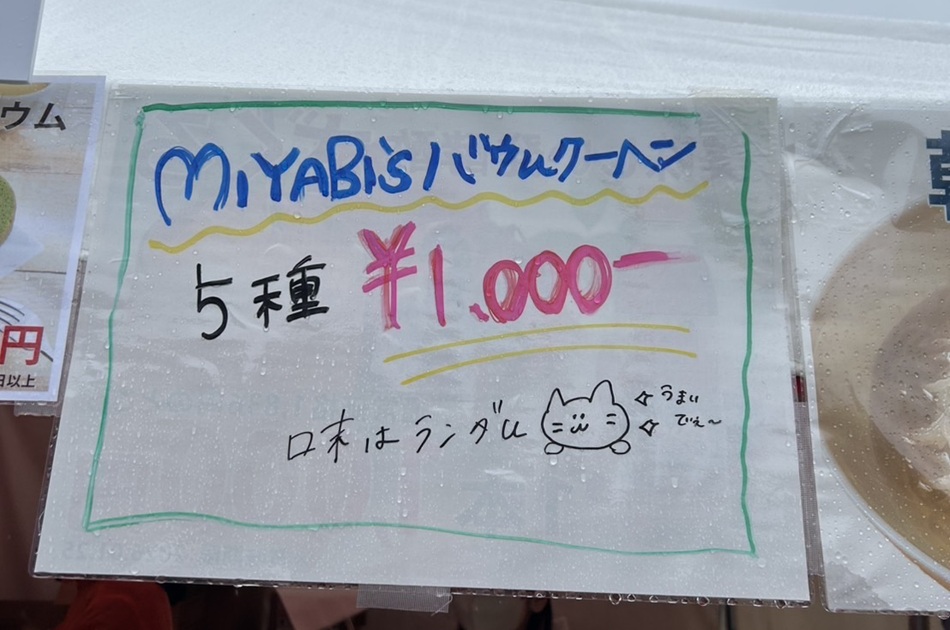 ウム
円
以上
MIYABI'S バウムクーヘン
5種 ¥1,000ー
味はランダム
うまい
でぇ〜